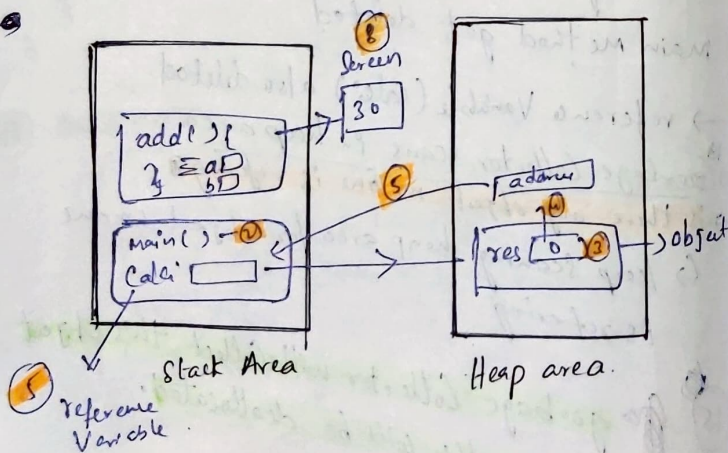 8
Screen
30
add( ) {
a
b
}
main( ) 2
Calci
5
address
4
res 0 3
object
Stack Area
Heap area.
5
reference
Variable.